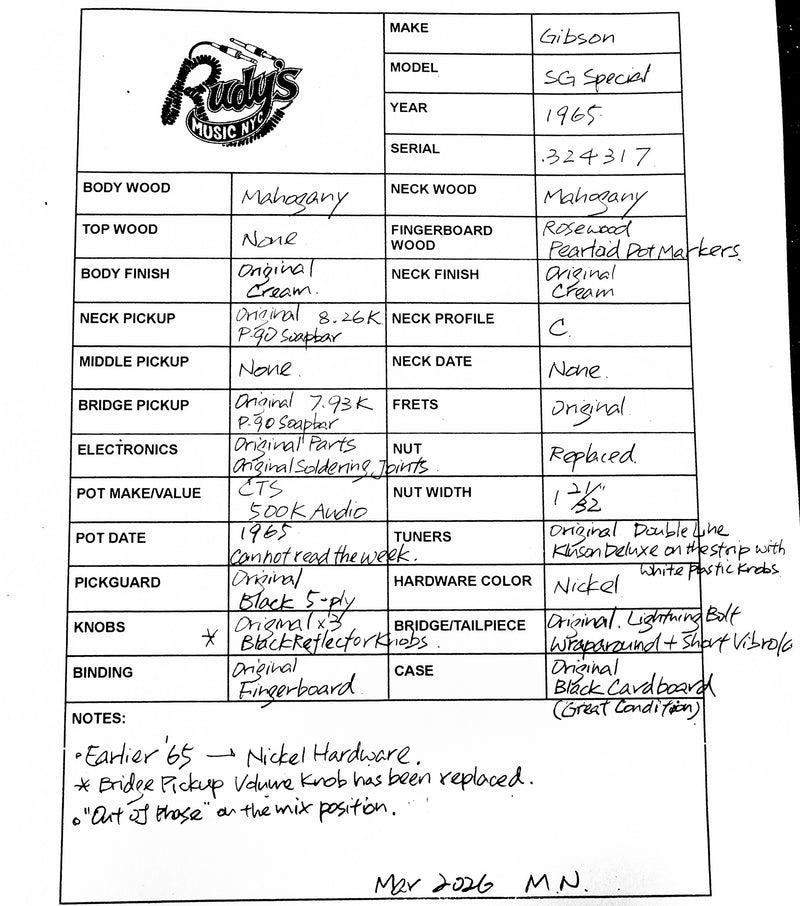 Rudy's
MUSIC NYC
MAKE Gibson
MODEL SG Special
YEAR 1965
SERIAL 324317
BODY WOOD Mahogany NECK WOOD Mahogany
TOP WOOD None FINGERBOARD WOOD Rosewood
Pearloid Dot Markers
BODY FINISH Original NECK FINISH Original
Cream Cream
NECK PICKUP Original 8.26K NECK PROFILE C
P-90 Soapbar
MIDDLE PICKUP None NECK DATE None
BRIDGE PICKUP Original 7.93K FRETS Original
P-90 Soapbar
ELECTRONICS Original Parts NUT Replaced
Original Soldering Joints
POT MAKE/VALUE CTS NUT WIDTH 1 21/32"
500K Audio
POT DATE 1965 TUNERS Original Double Line
Cannot read the week. Kluson Deluxe on the strip with
White Plastic Knobs
PICKGUARD Original HARDWARE COLOR Nickel
Black 5-ply
KNOBS Original x3 BRIDGE/TAILPIECE Original. Lightning Bolt
* Black Reflector Knobs Wraparound + Short Vibrola
BINDING Original CASE Original
Fingerboard Black Cardboard
(Great Condition)
NOTES:
• Earlier '65 → Nickel Hardware.
* Bridge Pickup Volume Knob has been replaced.
• "Out of Phase" on the mix position.
Mar 2026 M.N.